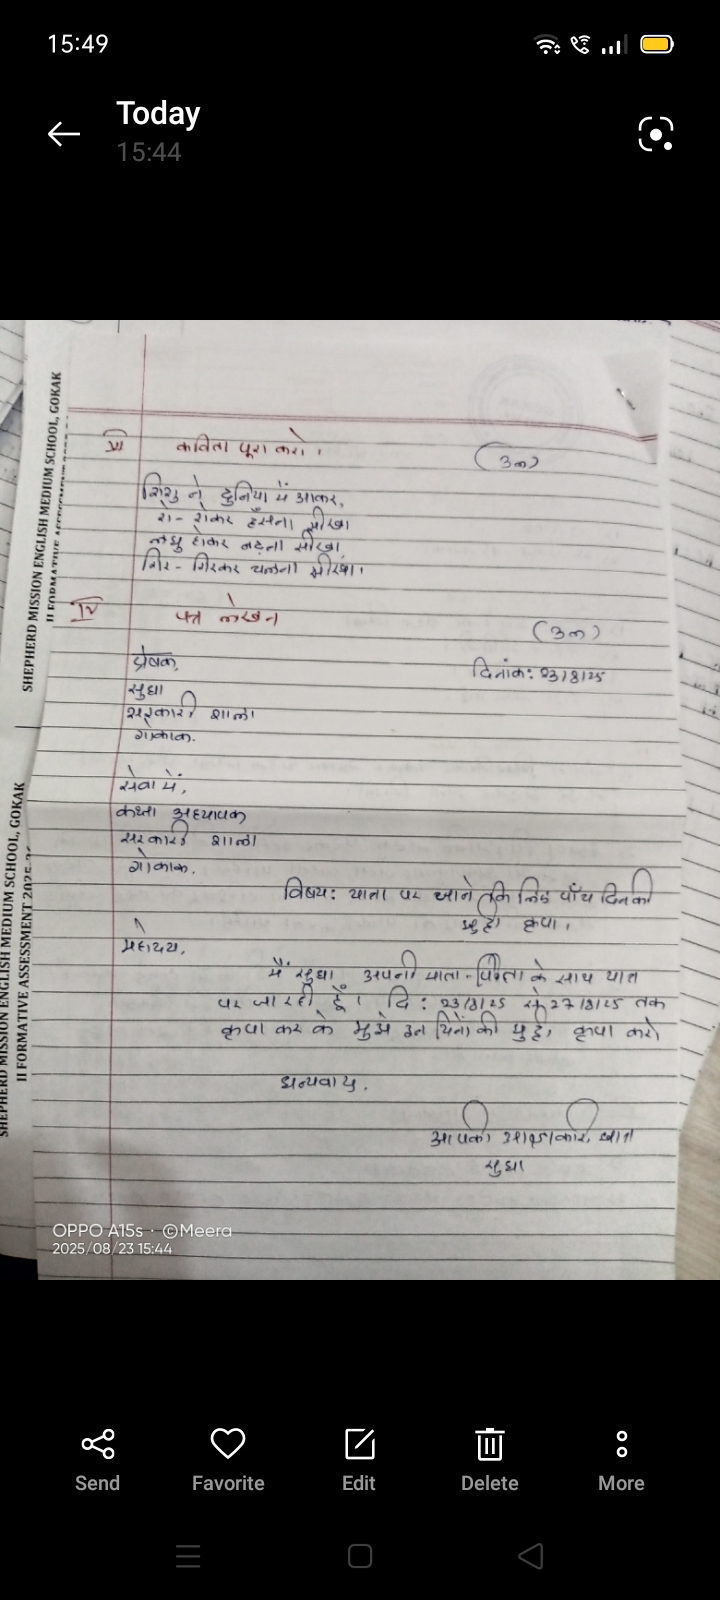 15:49
Today
15:44
SHEPHERD MISSION ENGLISH MEDIUM SCHOOL, GOKAK
II FORMATIVE ASSESSMENT
SHEPHERD MISSION ENGLISH MEDIUM SCHOOL, GOKAK
II FORMATIVE ASSESSMENT 2025-26
III कविता पूरा करो।
शिशु ने दुनिया में आकर,
रो-रोकर हँसना सीखा
लघु होकर बढ़ना सीखा,
गिर-गिरकर चलना सीखा।
IV पत्र लेखन
प्रेषक, दिनांक: 23/8/25
सुधा
सरकारी शाला
गोकाक.
सेवा में,
कक्षा अध्यापक
सरकारी शाला
गोकाक.
विषय: यात्रा पर जाने के लिए पाँच दिन की
कृपा।
महोदय,
मैं सुधा अपनी माता-पिता के साथ यात्रा
पर जा रही हूँ। दि: 23/8/25 से 27/8/25 तक
कृपा कर के मुझे इन दिनों की कृपा करो
धन्यवाद.
आपकी
सुधा
OPPO A15s · ©Meera
2025/08/23 15:44
Send
Favorite
Edit
Delete
More